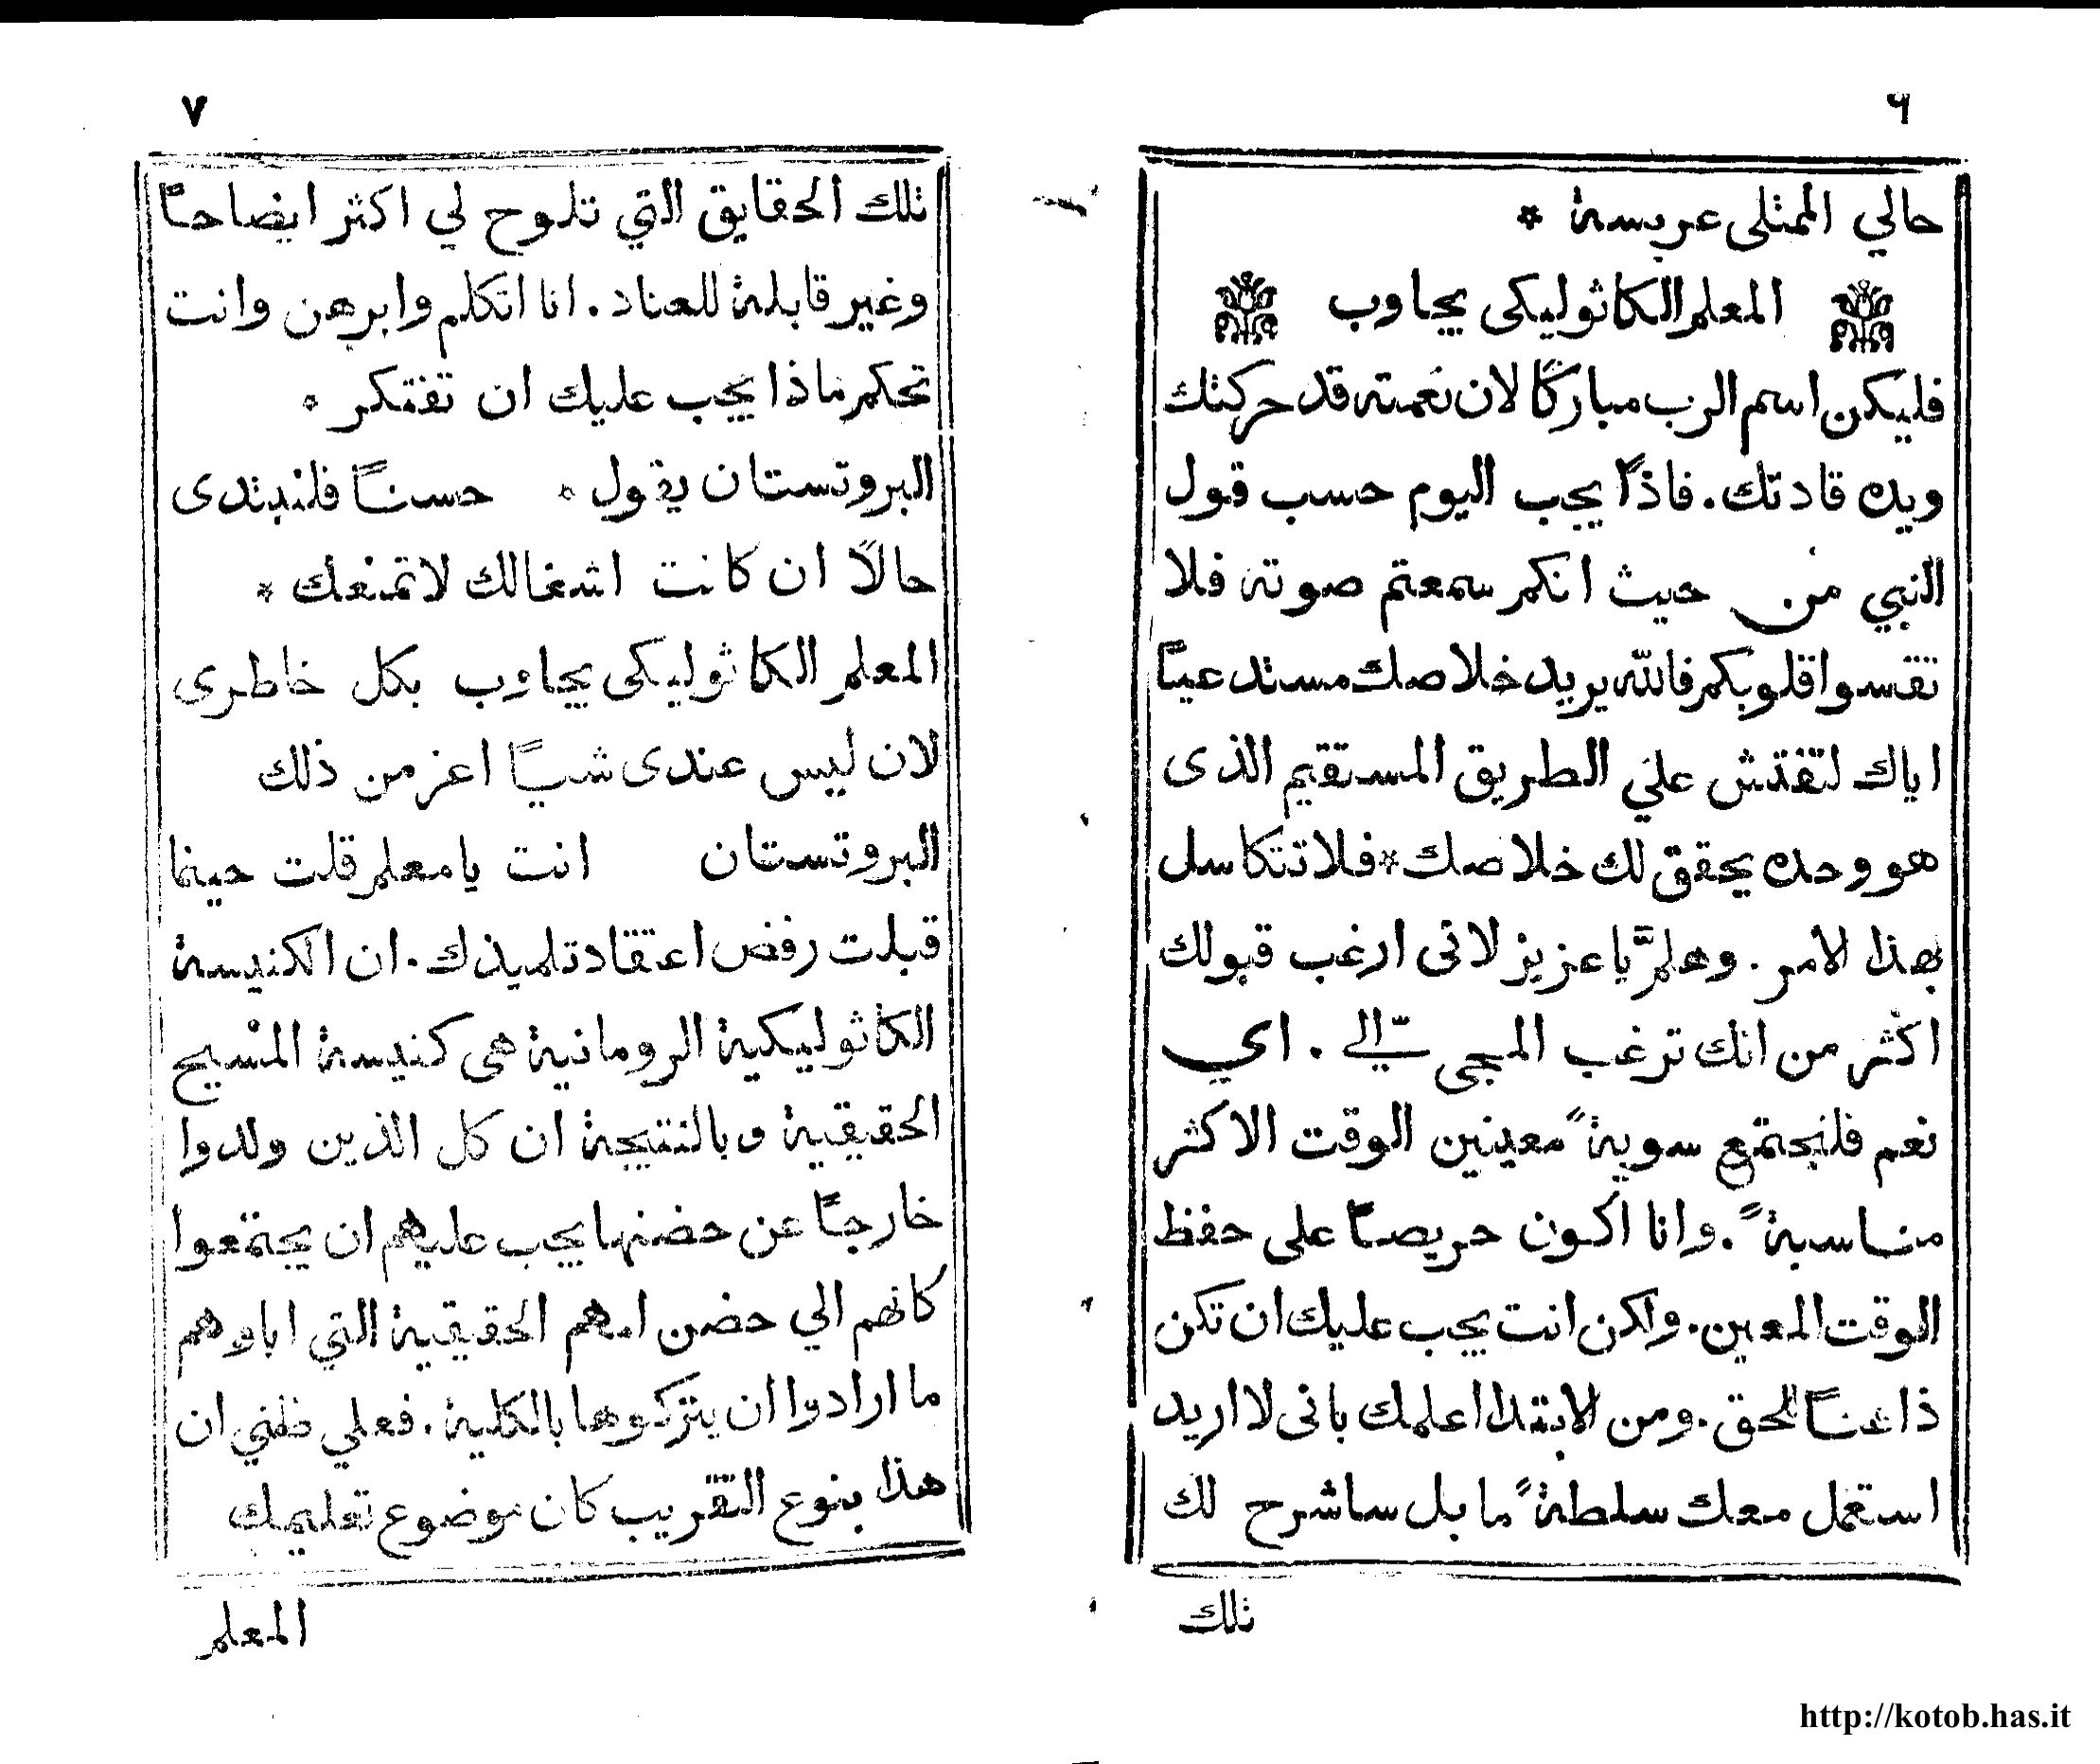 ٦
حالي الممتلى عريسة *
المعلم الكاثوليكى يجاوب
فليكن اسم الرب مباركًا لان نعمته قد حركتك
ويده قادتك. فاذًا يجب اليوم حسب قول
النبي من حيث انكم سمعتم صوته فلا
تقسوا قلوبكم فالله يريد خلاصك مستدعيًا
اياك لتفتش علي الطريق المستقيم الذى
هو وحده يحقق لك خلاصك * فلا تتكاسل
بهذا الامر. وهلمَّ يا عزيز لانى ارغب قبولك
اكثر من انك ترغب المجى اليّ. اي
نعم فلنجتمع سويةً معينين الوقت الاكثر
مناسبةً. وانا اكون حريصًا على حفظ
الوقت المعين. ولكن انت يجب عليك ان تكن
ذاعنًا للحق. ومن الابتدا اعلمك بانى لا اريد
استعمل معك سلطةً ما بل ساشرح لك
تلك
٧
تلك الحقايق التي تلوح لي اكثر ايضاحًا
وغير قابلة للعناد. انا اتكلم وابرهن وانت
تحكم ماذا يجب عليك ان تفتكر *
البروتستان يقول * حسنًا فلنبتدى
حالًا ان كانت اشغالك لا تمنعك *
المعلم الكاثوليكى يجاوب بكل خاطرى
لان ليس عندى شيًا اعز من ذلك
البروتستان انت يا معلم قلت حينما
قبلت رفض اعتقاد تلميذك. ان الكنيسة
الكاثوليكية الرومانية هى كنيسة المسيح
الحقيقية وبالنتيجة ان كل الذين ولدوا
خارجًا عن حضنها يجب عليهم ان يجتمعوا
كانهم الي حضن امهم الحقيقية التي اباوهم
ما ارادوا ان يتركوها بالكلية. فعلي ظني ان
هذا بنوع التقريب كان موضوع تعليمك
المعلم
http://kotob.has.it